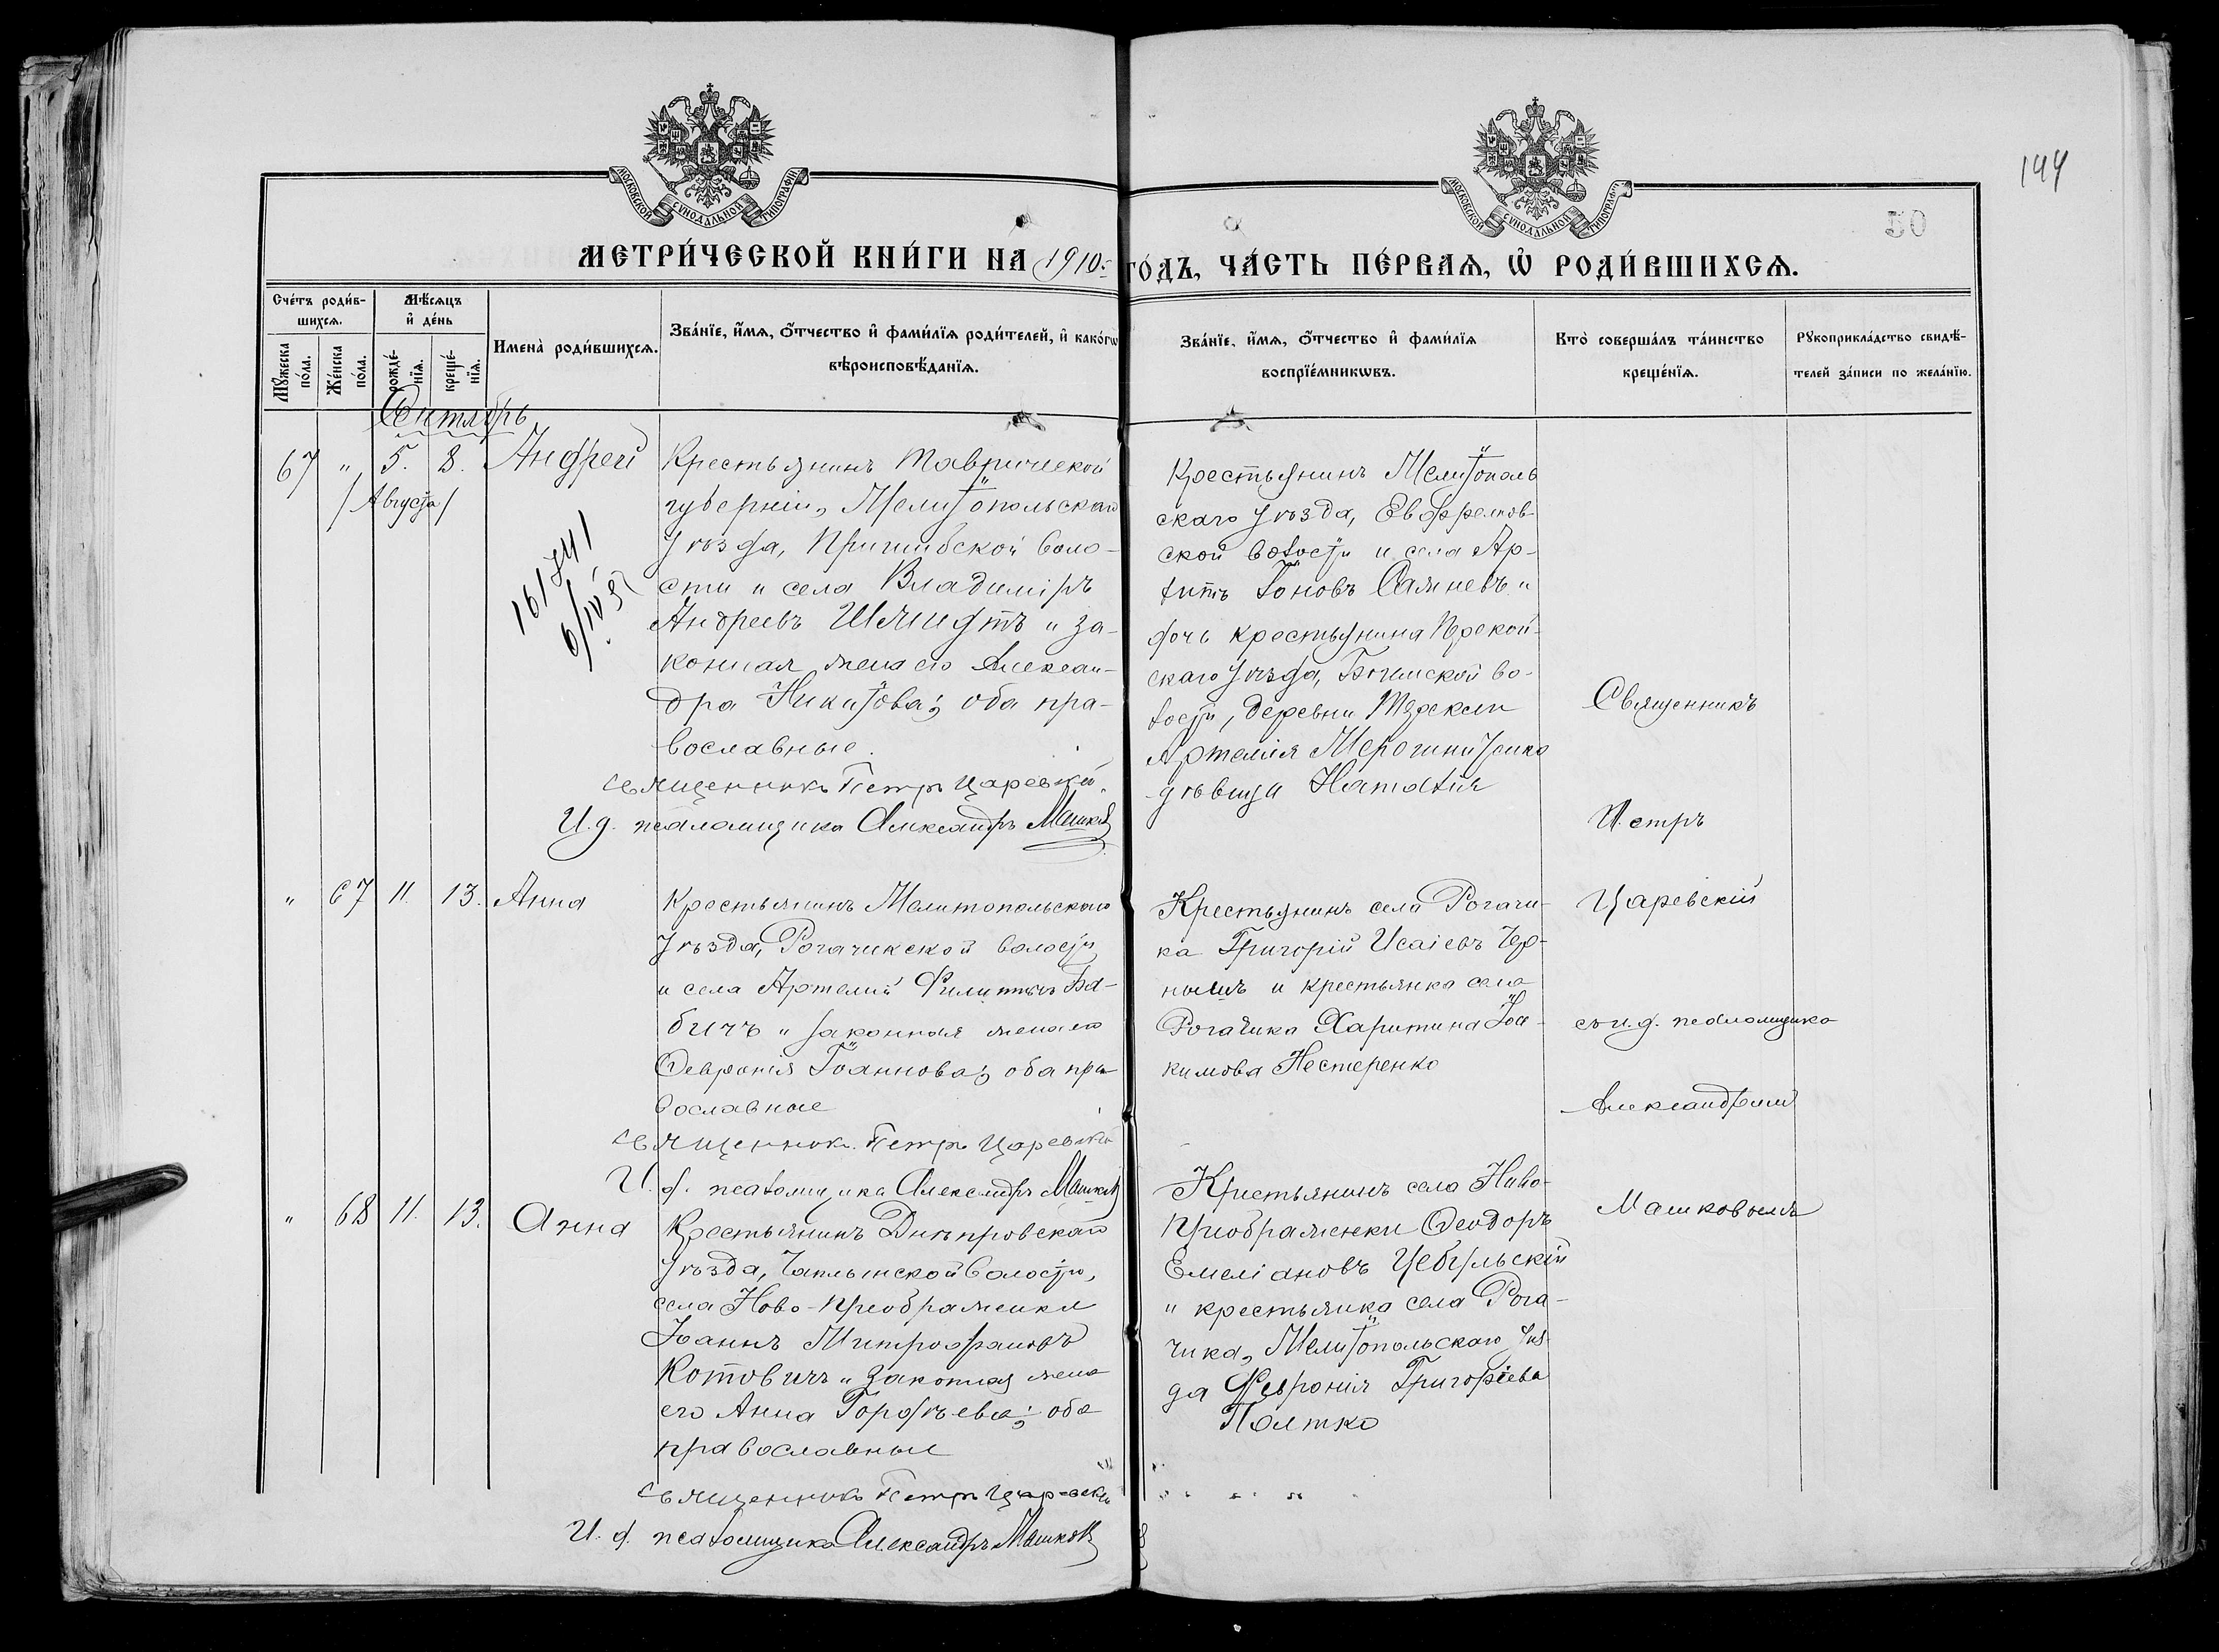 144
50
МОСКОВСКОЙ СѴНОДАЛЬНОЙ ТИПОГРАФІИ
МОСКОВСКОЙ СѴНОДАЛЬНОЙ ТИПОГРАФІИ
МЕТРИ́ЧЕСКОЙ КНИ́ГИ НА 1910 ГО́ДЪ, ЧА́СТЬ ПЕ́РВАѦ, Ѡ҆ РОДИ́ВШИХСѦ.
Сче́тъ роди́в-
шихсѧ.
Мꙋ́жеска по́ла.
Же́нска по́ла.
Мѣ́сѧцъ
и҆ де́нь
рожде́-
нїѧ.
креще́-
нїѧ.
Имена̀ роди́вшихсѧ.
Зва́нїе, и҆́мѧ, ѻ҆́тчество и҆ фами́лїѧ роди́телей, и҆ како́гѡ
вѣроисповѣ́данїѧ.
Зва́нїе, и҆́мѧ, ѻ҆́тчество и҆ фами́лїѧ
воспрїе́мникѡвъ.
Кто̀ соверша́лъ та́инство
креще́нїѧ.
Рꙋкоприкла́дство свидѣ́-
телей за́писи по жела́нїю.
Сентябрь
67 " 5. 8. Андрей
/Августа/
Крестьянинъ Таврической
губерніи, Мелитопольскаго
уѣзда, Пришибской воло-
сти и села Владиміръ
Андреевъ Шмидтъ и за-
конная жена его Алексан-
дра Никитова; оба пра-
вославные.
Священникъ Петръ Царевскій.
И.д. псаломщика Александръ Машков
Крестьянинъ Мелитополь
скаго уѣзда,
ской волости и села
Іоновъ
дочь крестьянина Перекоп-
скаго уѣзда, во-
лости, деревни
Артемія
дѣвица Наталія
Священникъ
Петръ
Царевскій
съ и.д. псаломщика
Александромъ
Машковымъ
" 67 11. 13. Анна
Крестьянинъ Мелитопольскаго
уѣзда, Рогачикской волости
и села Артемій Филипповъ Ба-
бичъ и законная жена его
Февронія Іоаннова; оба пра-
вославные
Священникъ Петръ Царевскій
И. д. псаломщика Александръ Машков
Крестьянинъ села Рогачи-
ка Григорій Исаіевъ Чер-
нышъ и крестьянка села
Рогачика Харитина Іоа-
кимова Нестеренко
" 68 11. 13. Анна
Крестьянинъ Днѣпровскаго
уѣзда, Чаплынской волости,
села Ново-Преображенки
Іоаннъ Митрофановъ
Котовичъ и законная жена
его Анна Гордѣева; оба
православные
Священникъ Петръ Царевскій
И. д. псаломщика Александръ Машков
Крестьянинъ села Ново-
Преображенки Феодоръ
Емеліановъ Цебульскій
и крестьянка села Рога-
чика, Мелитопольскаго уѣз-
да Февронія Григоріева